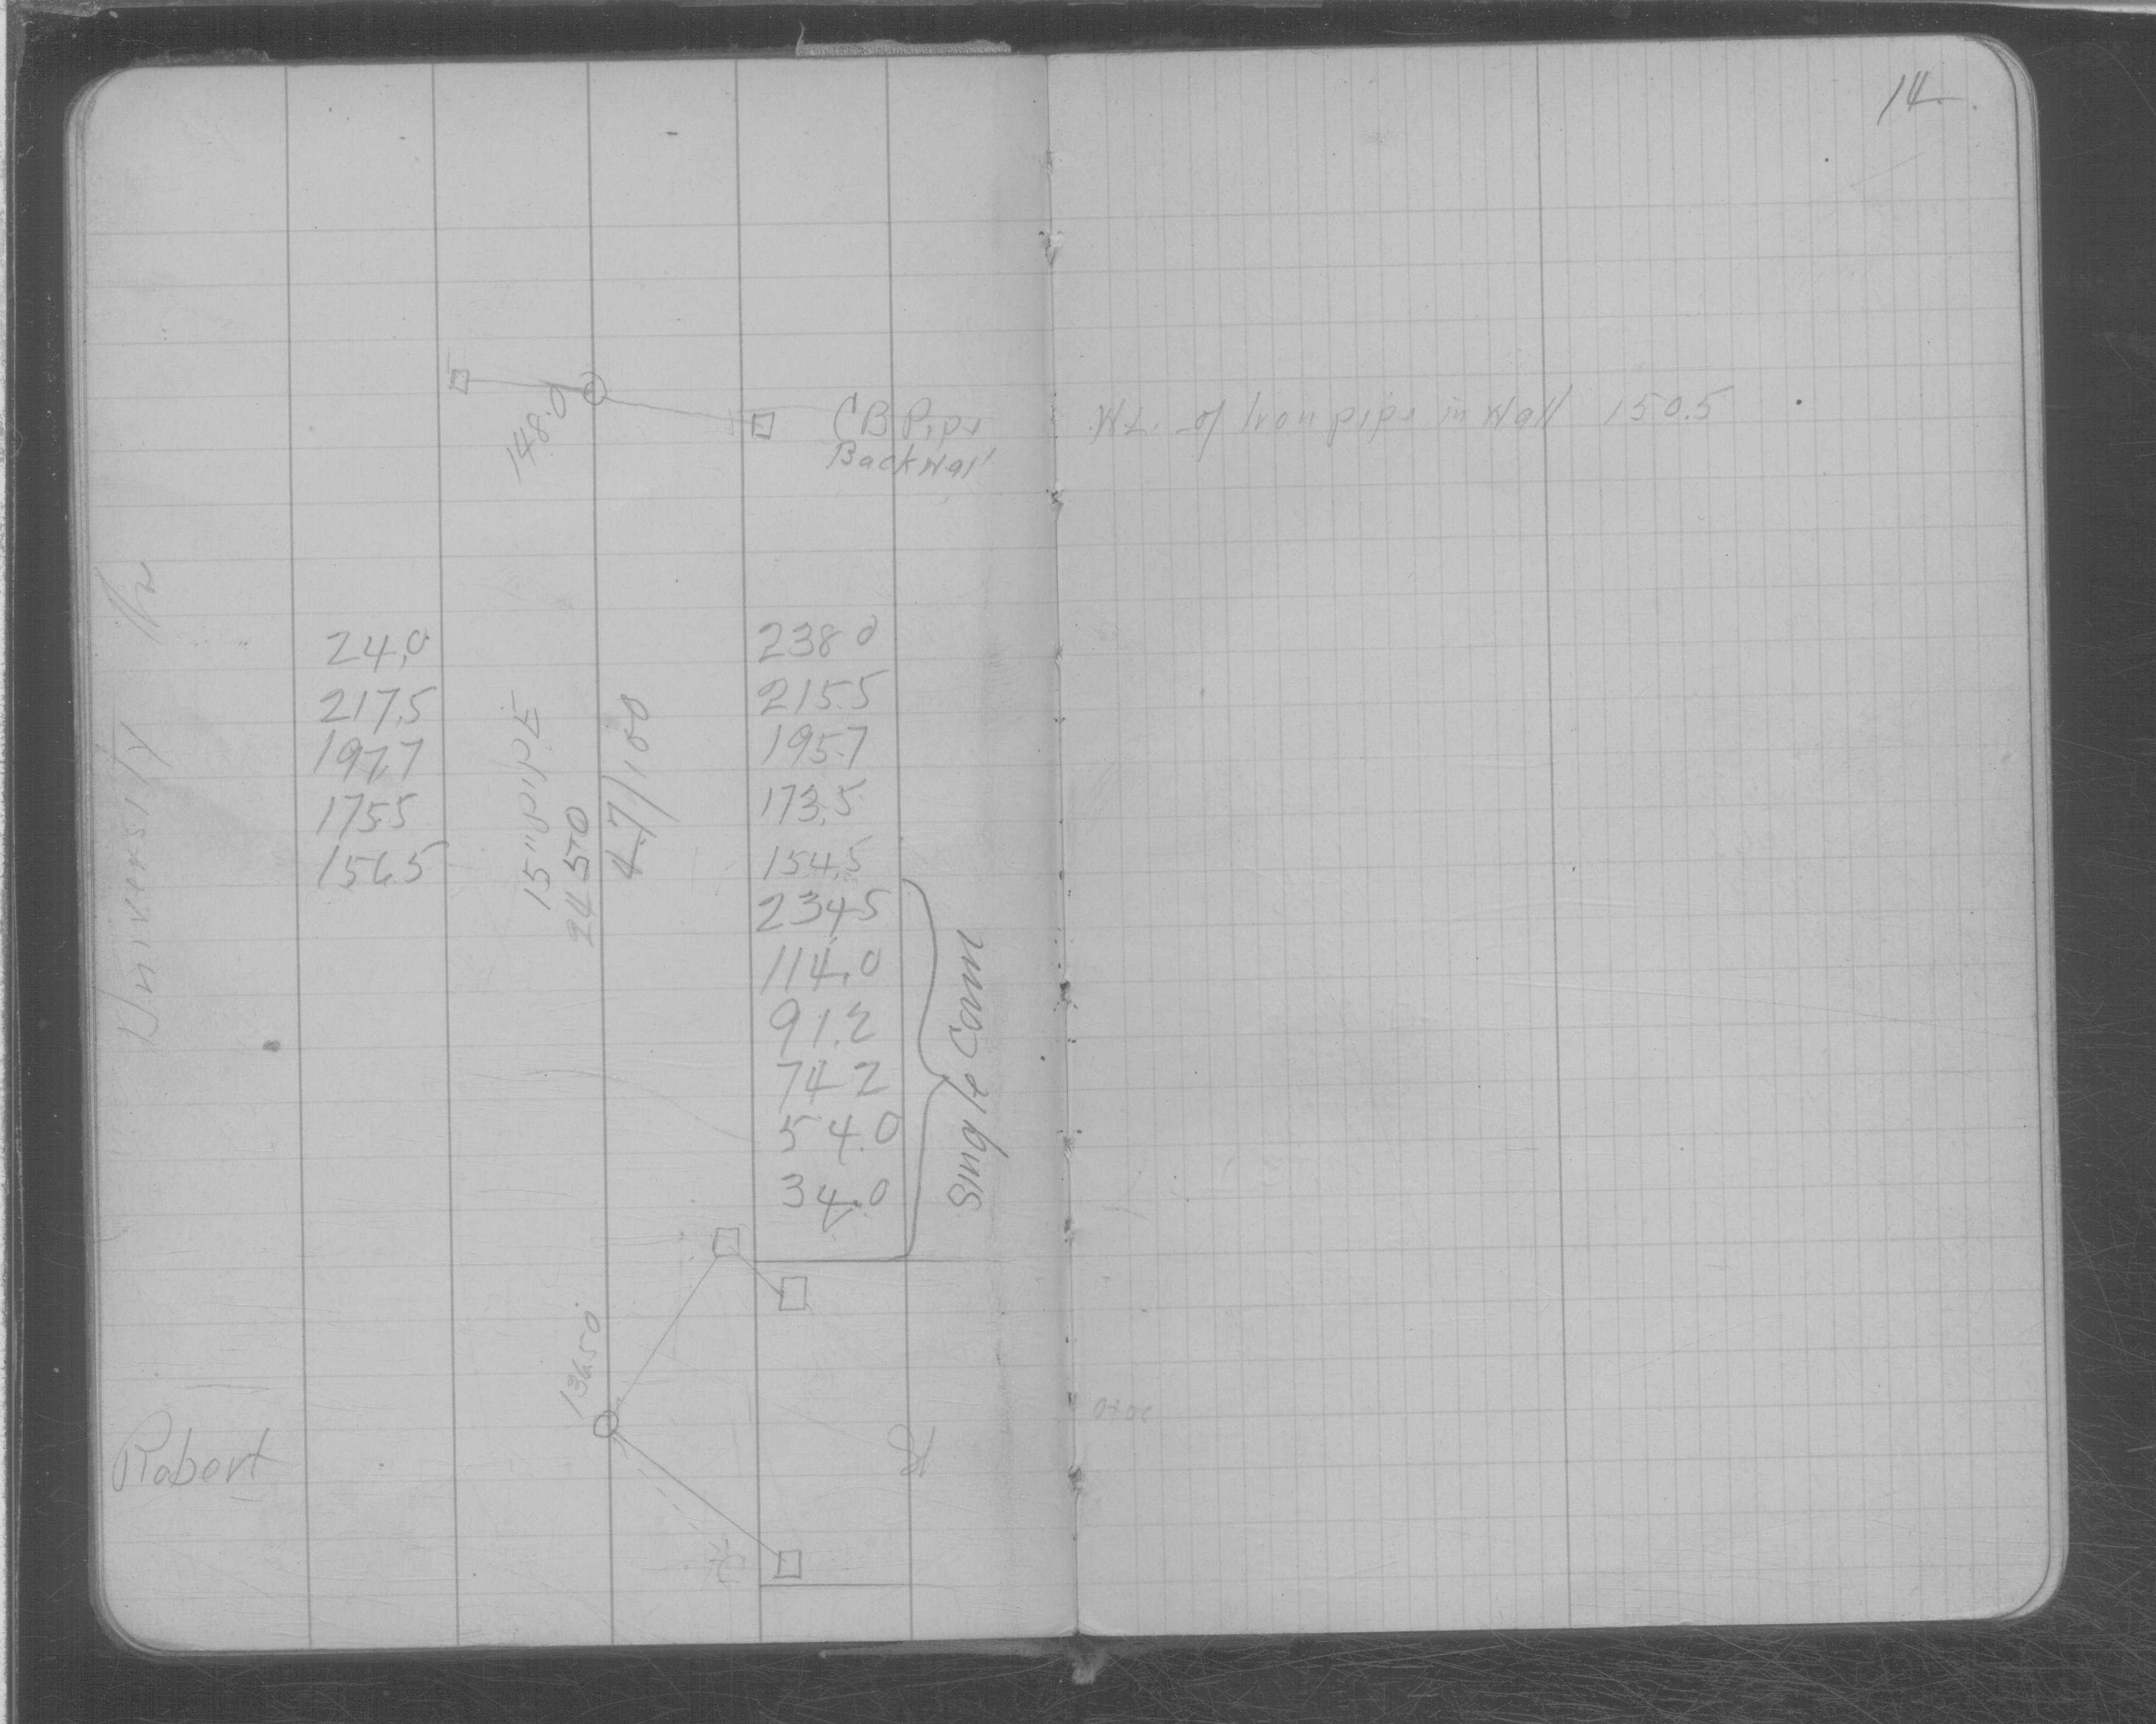 14
148.0
C B Pipe
Backwall
Wt. of Iron pipe in Wall 150.5
University
24.0
217.5
197.7
175.5
156.5
15" PIPE
24 5.0
4.7/100
238 0
215.5
195.7
173.5
154.5
234.5
114.0
91.2
74.2
54.0
34.0
Single Conn
136.50
Robert St